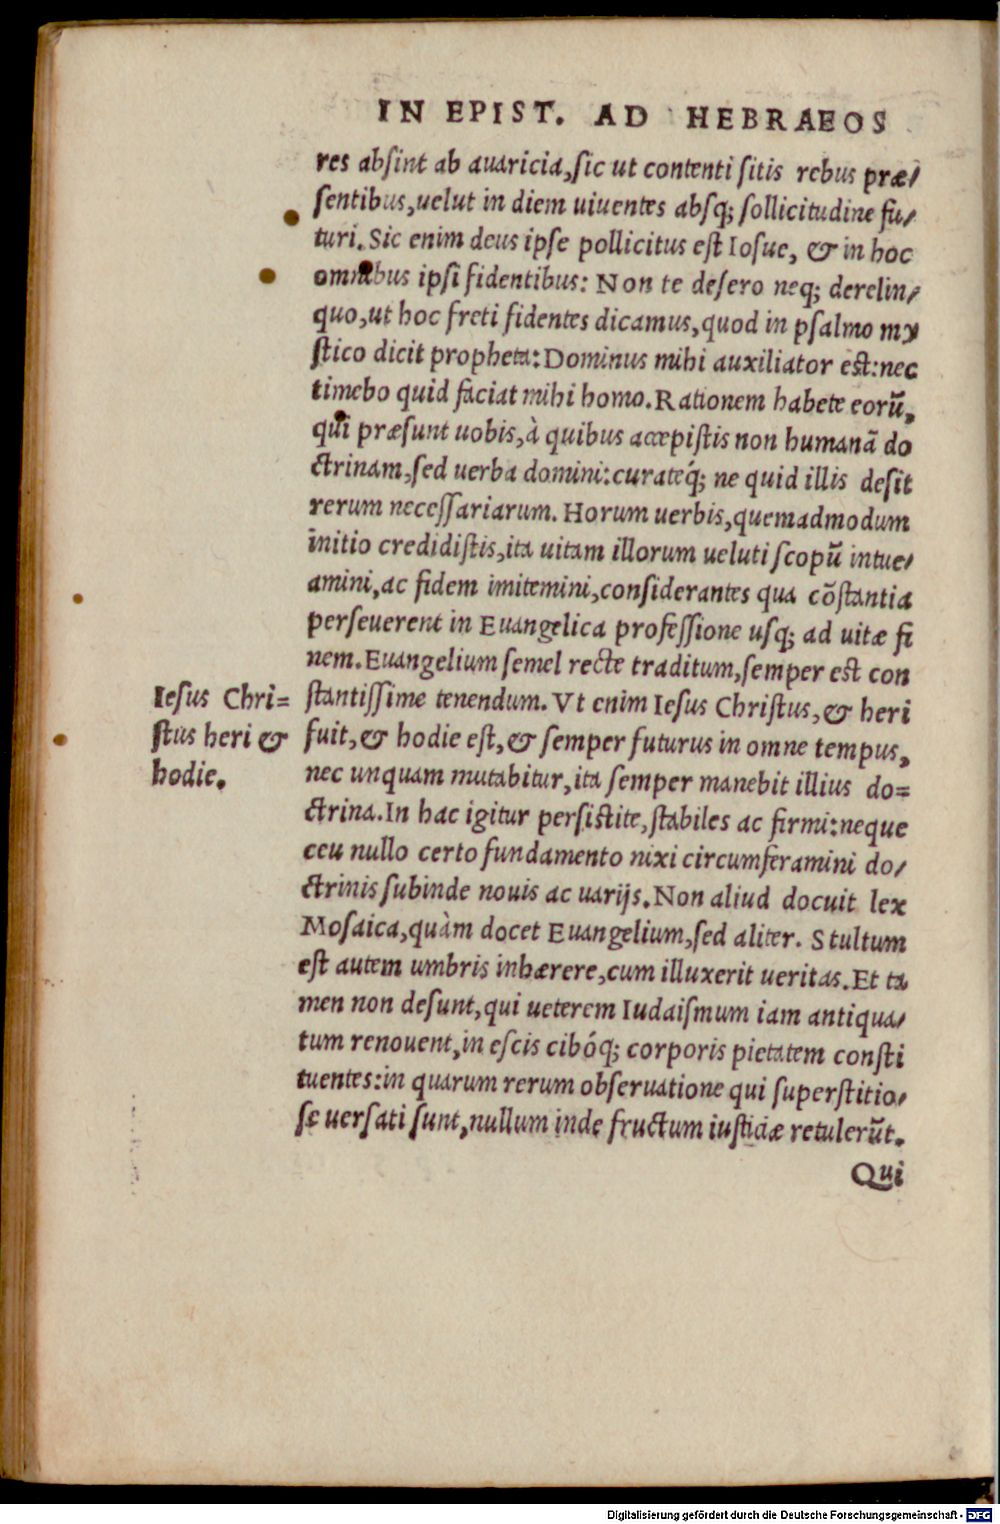 IN EPIST. AD HEBRAEOS
res absint ab auaricia, sic ut contenti sitis rebus præ/
sentibus, uelut in diem uiuentes absq; sollicitudine fu/
turi. Sic enim deus ipse pollicitus est Iosue, & in hoc
omnibus ipsi fidentibus: Non te desero neq; derelin/
quo, ut hoc freti fidentes dicamus, quod in psalmo my
stico dicit propheta: Dominus mihi auxiliator est: nec
timebo quid faciat mihi homo. Rationem habete eorū,
qui præsunt uobis, à quibus accepistis non humanā do
ctrinam, sed uerba domini: curateq́; ne quid illis desit
rerum necessariarum. Horum uerbis, quemadmodum
initio credidistis, ita uitam illorum ueluti scopū intue/
amini, ac fidem imitemini, considerantes qua cōstantia
perseuerent in Euangelica professione usq; ad uitæ fi
nem. Euangelium semel recte traditum, semper est con
stantissime tenendum. Vt enim Iesus Christus, & heri
fuit, & hodie est, & semper futurus in omne tempus,
nec unquam mutabitur, ita semper manebit illius do=
ctrina. In hac igitur persistite, stabiles ac firmi: neque
ceu nullo certo fundamento nixi circumferamini do/
ctrinis subinde nouis ac uarijs. Non aliud docuit lex
Mosaica, quàm docet Euangelium, sed aliter. Stultum
est autem umbris inhærere, cum illuxerit ueritas. Et ta
men non desunt, qui ueterem Iudaismum iam antiqua/
tum renouent, in escis cibóq; corporis pietatem consti
tuentes: in quarum rerum obseruatione qui superstitio/
se uersati sunt, nullum inde fructum iusticiæ retulerūt.
Qui
Iesus Chri=
stus heri &
hodie.
Digitalisierung gefördert durch die Deutsche Forschungsgemeinschaft - DFG